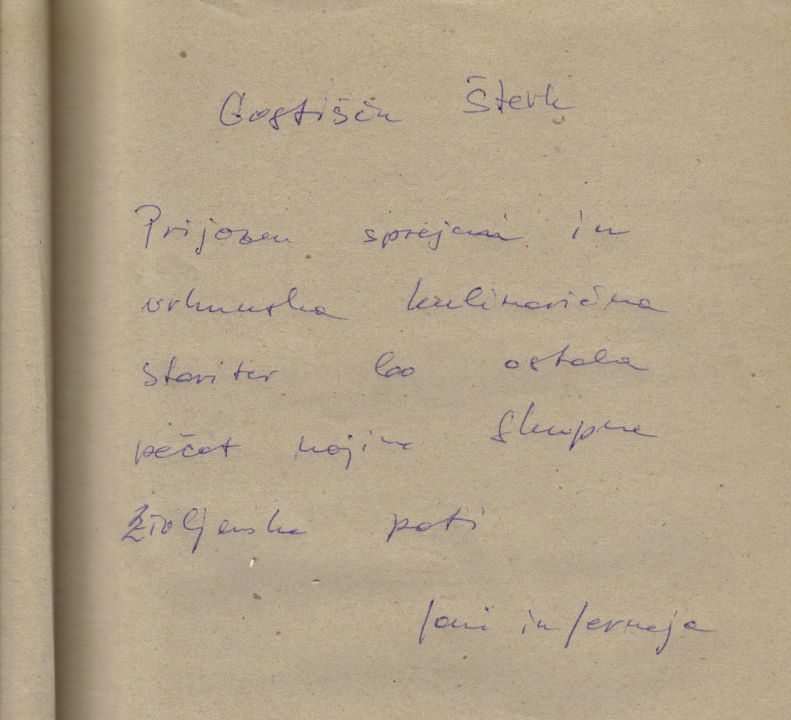 Gostišču Šterk
Prijazen sprejem in
vrhunska kulinarična
storitev bo ostala
pečat najine skupne
življenske poti
Jani in Jerneja